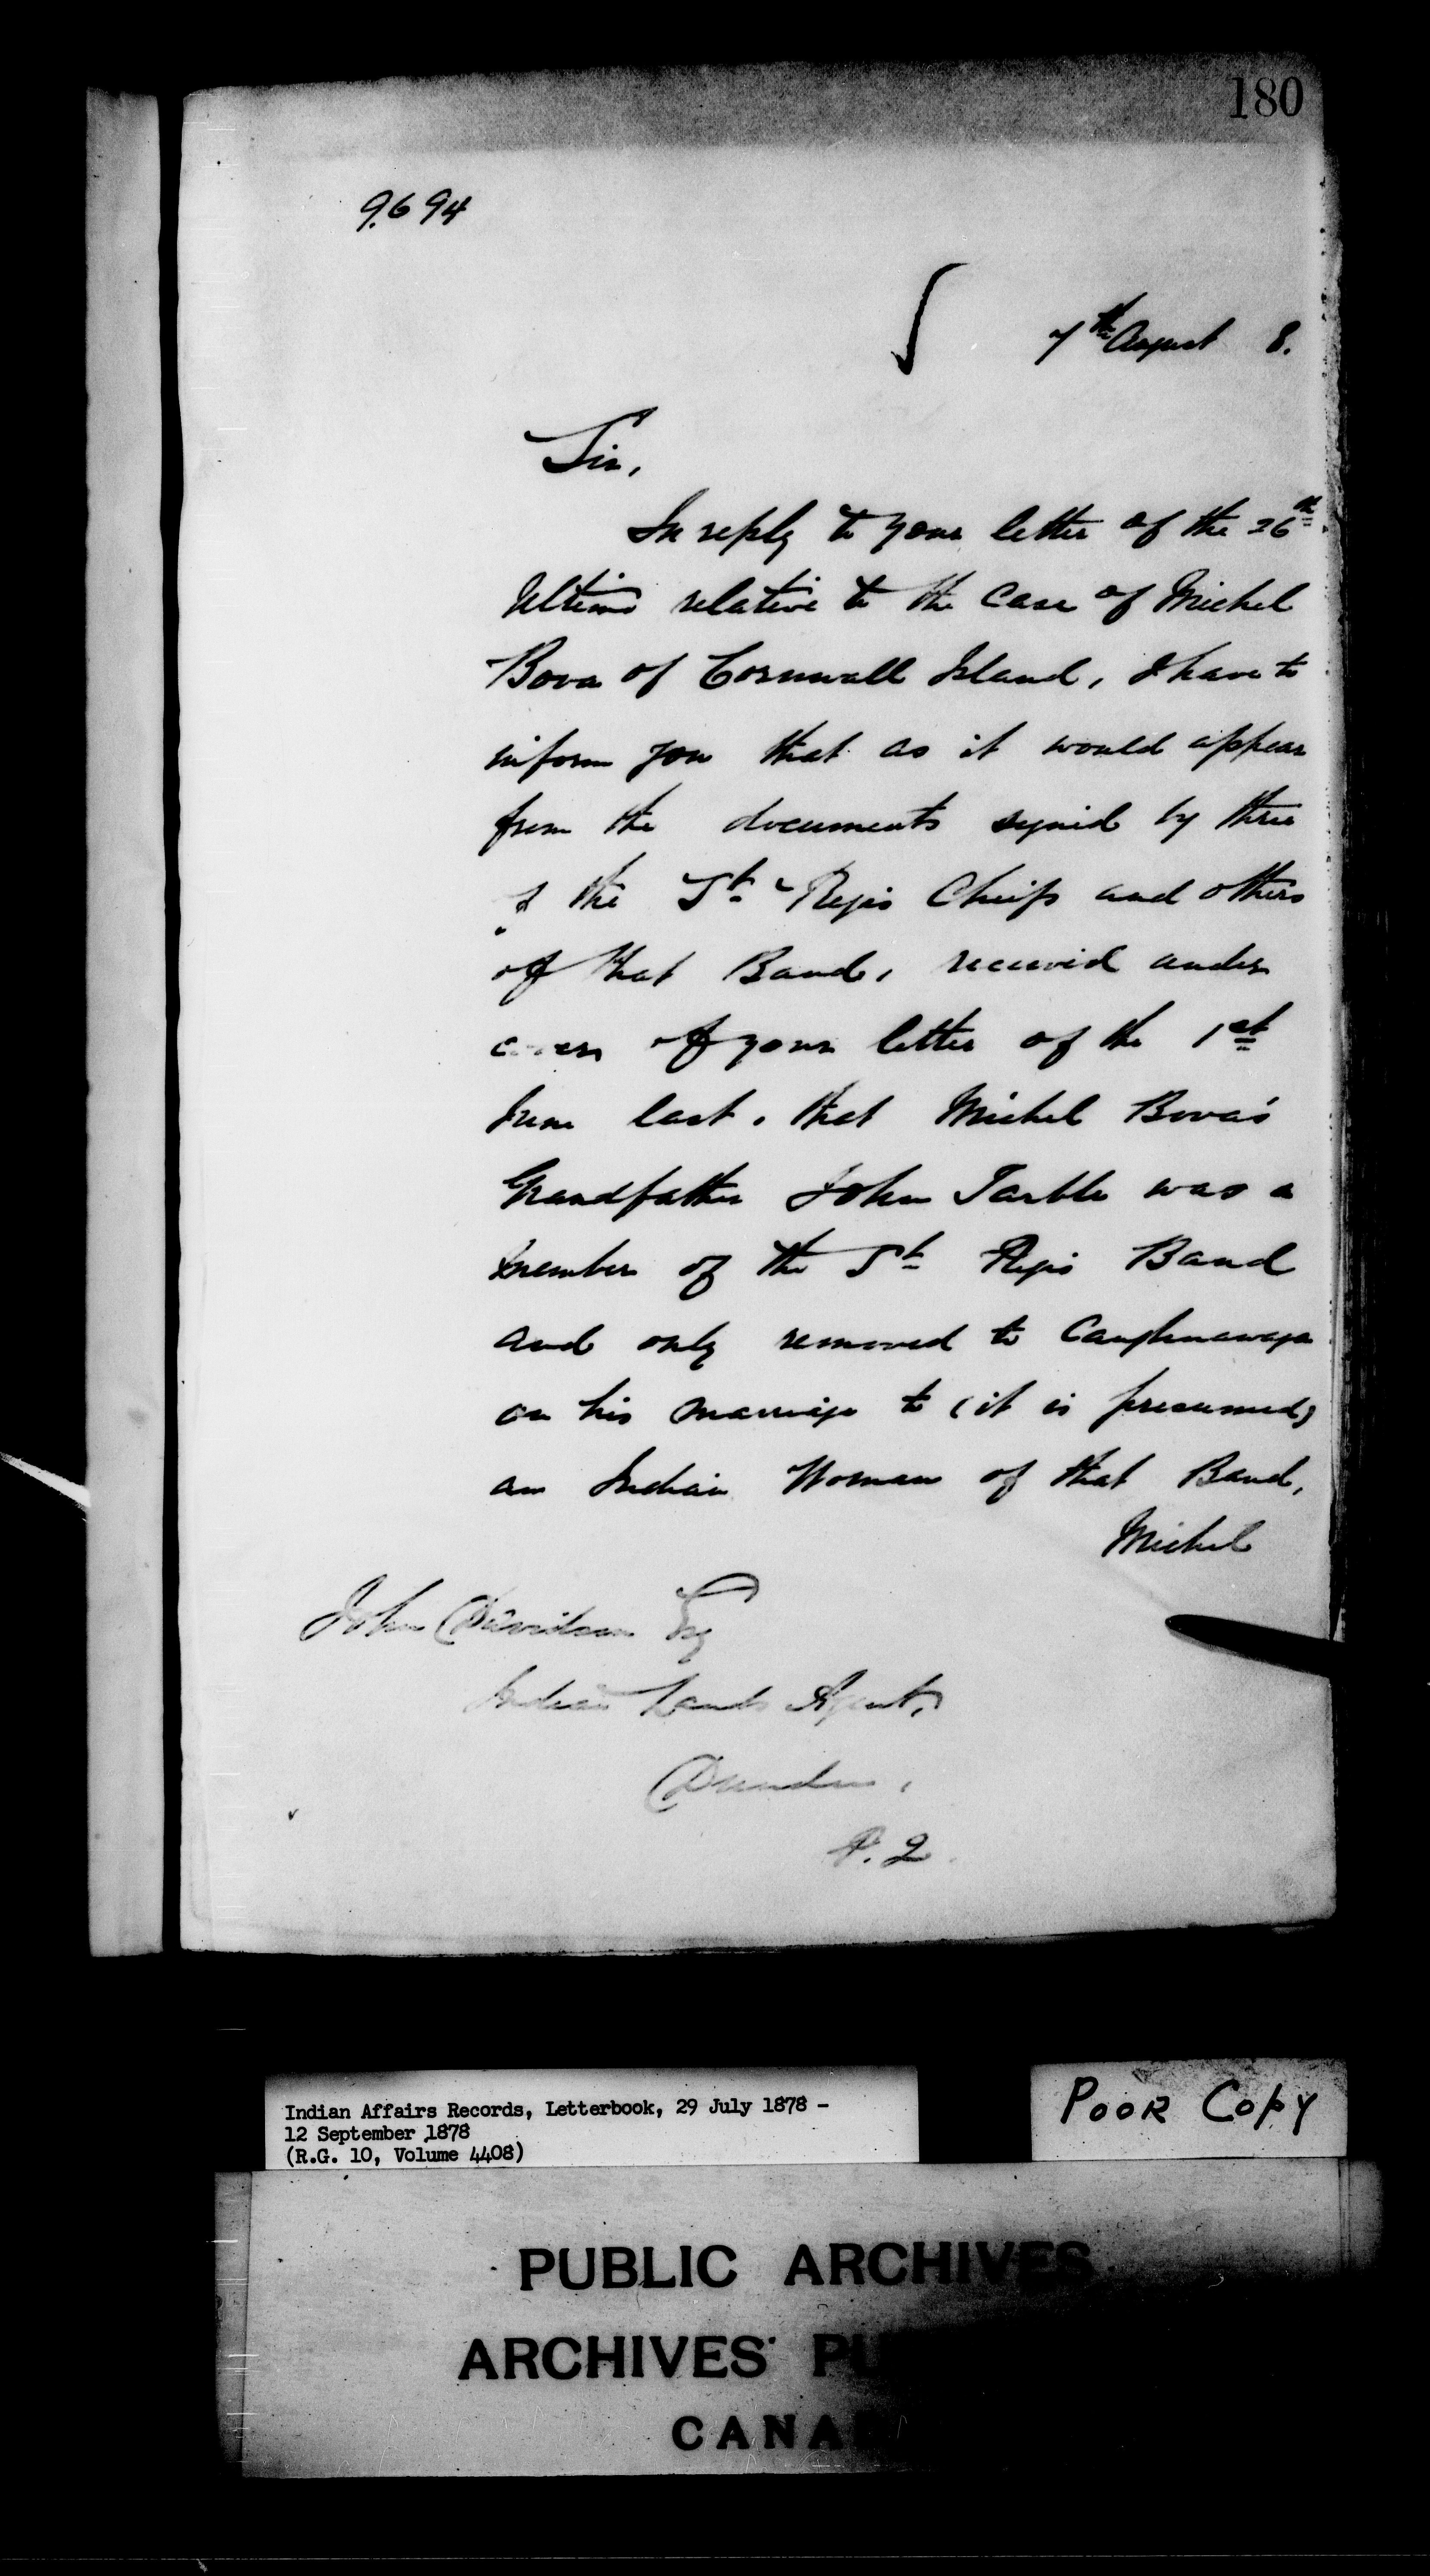 180
9694
7th August 8.
Sir,
In reply to your letter of the 26th
Ultimo relative to the case of Michel
Bova of Cornwall Island, I have to
inform you that as it would appear
from the documents signed by three
of the St. Regis Chiefs and others
of that Band, received under
cover of your letter of the 1st
June last, that Michel Bova's
Grandfather John Tarble was a
member of the St. Regis Band
and only removed to Caughnawaga
on his marriage to (it is presumed)
an Indian Woman of that Band,
Michel
John Davidson Esq
Indian Lands Agent,
Dundee,
P.Q.
Indian Affairs Records, Letterbook, 29 July 1878 -
12 September 1878
(R.G. 10, Volume 4408)
POOR COPY
PUBLIC ARCHIVES
ARCHIVES PU
CANA